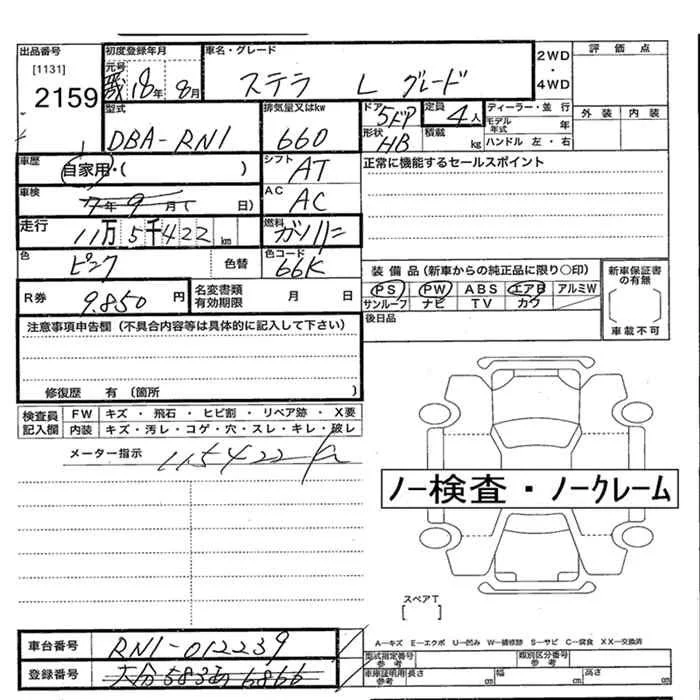 出品番号
[1131]
2159
初度登録年月
元号
18年 8月
車名・グレード
ステラ L グレード
2WD
・
4WD
評価点
外装 内装
型式
DBA-RN1
排気量又はkw
660
ドア
5ドア
形状
HB
定員
4人
積載
kg
ディーラー・並行
モデル年式 年
ハンドル 左・右
車歴
自家用・( )
シフト
AT
正常に機能するセールスポイント
車検
7年 9月( 日)
AC
AC
走行
11万5千422km
燃料
ガソリン
色
ピンク
色替
色コード
66K
装備品(新車からの純正品に限り○印)
PS PW ABS エアB アルミW
サンルーフ ナビ TV カワ
新車保証書の有無
車載不可
R券
9.850円
名変書類有効期限 月 日
後日品
注意事項申告欄(不具合内容等は具体的に記入して下さい)
修復歴 有(箇所 )
検査員記入欄
FW キズ・飛石・ヒビ割・リペア跡・X要
内装 キズ・汚レ・コゲ・穴・スレ・キレ・破レ
メーター指示
115422
ノー検査・ノークレーム
スペアT
[ ]
A-キズ E-エクボ U-凹み W-補修跡 S-サビ C-腐食 XX-交換済
車台番号
RN1-012239
登録番号
大分583あ6866
型式指定番号
参考
類別区分番号
参考
車庫証明用
参考
長さ cm 幅 cm 高さ cm